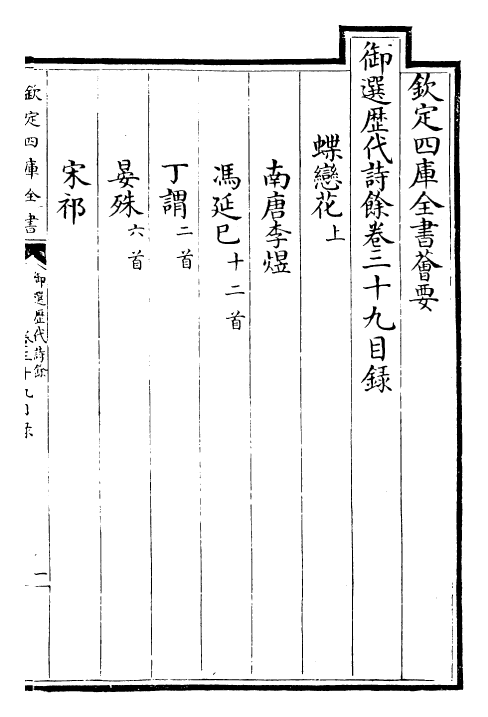 欽定四庫全書薈要
御選歴代詩餘卷三十九目録
蝶戀花上
南唐李煜
馮延巳十二首
丁謂二首
晏殊六首
宋祁
欽定四庫全書
御選歴代詩餘
卷三十九目録
一